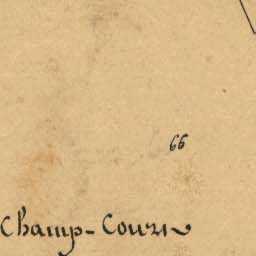 66
Champ-Courv